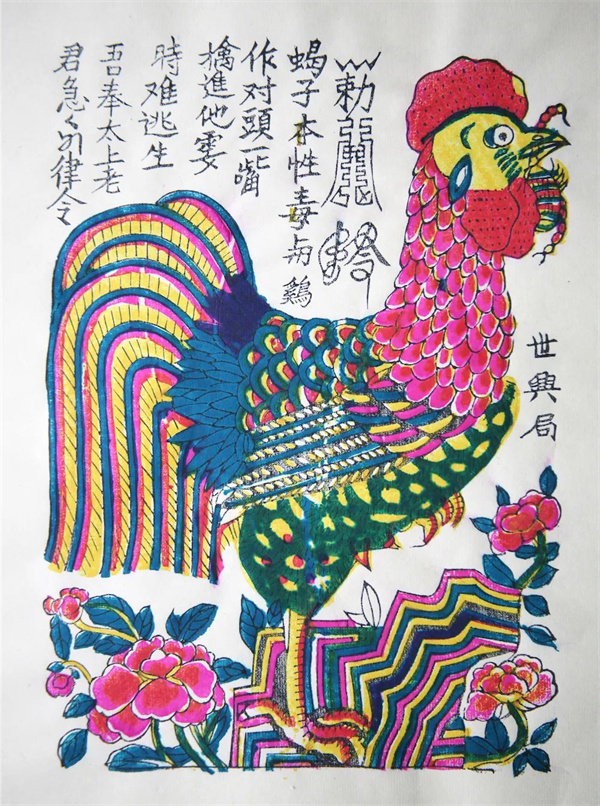 勅
蝎子本性毒与鷄
作对頭一嘴
擒進他霎
時难逃生
吾奉太上老
君急々如律令
世興局